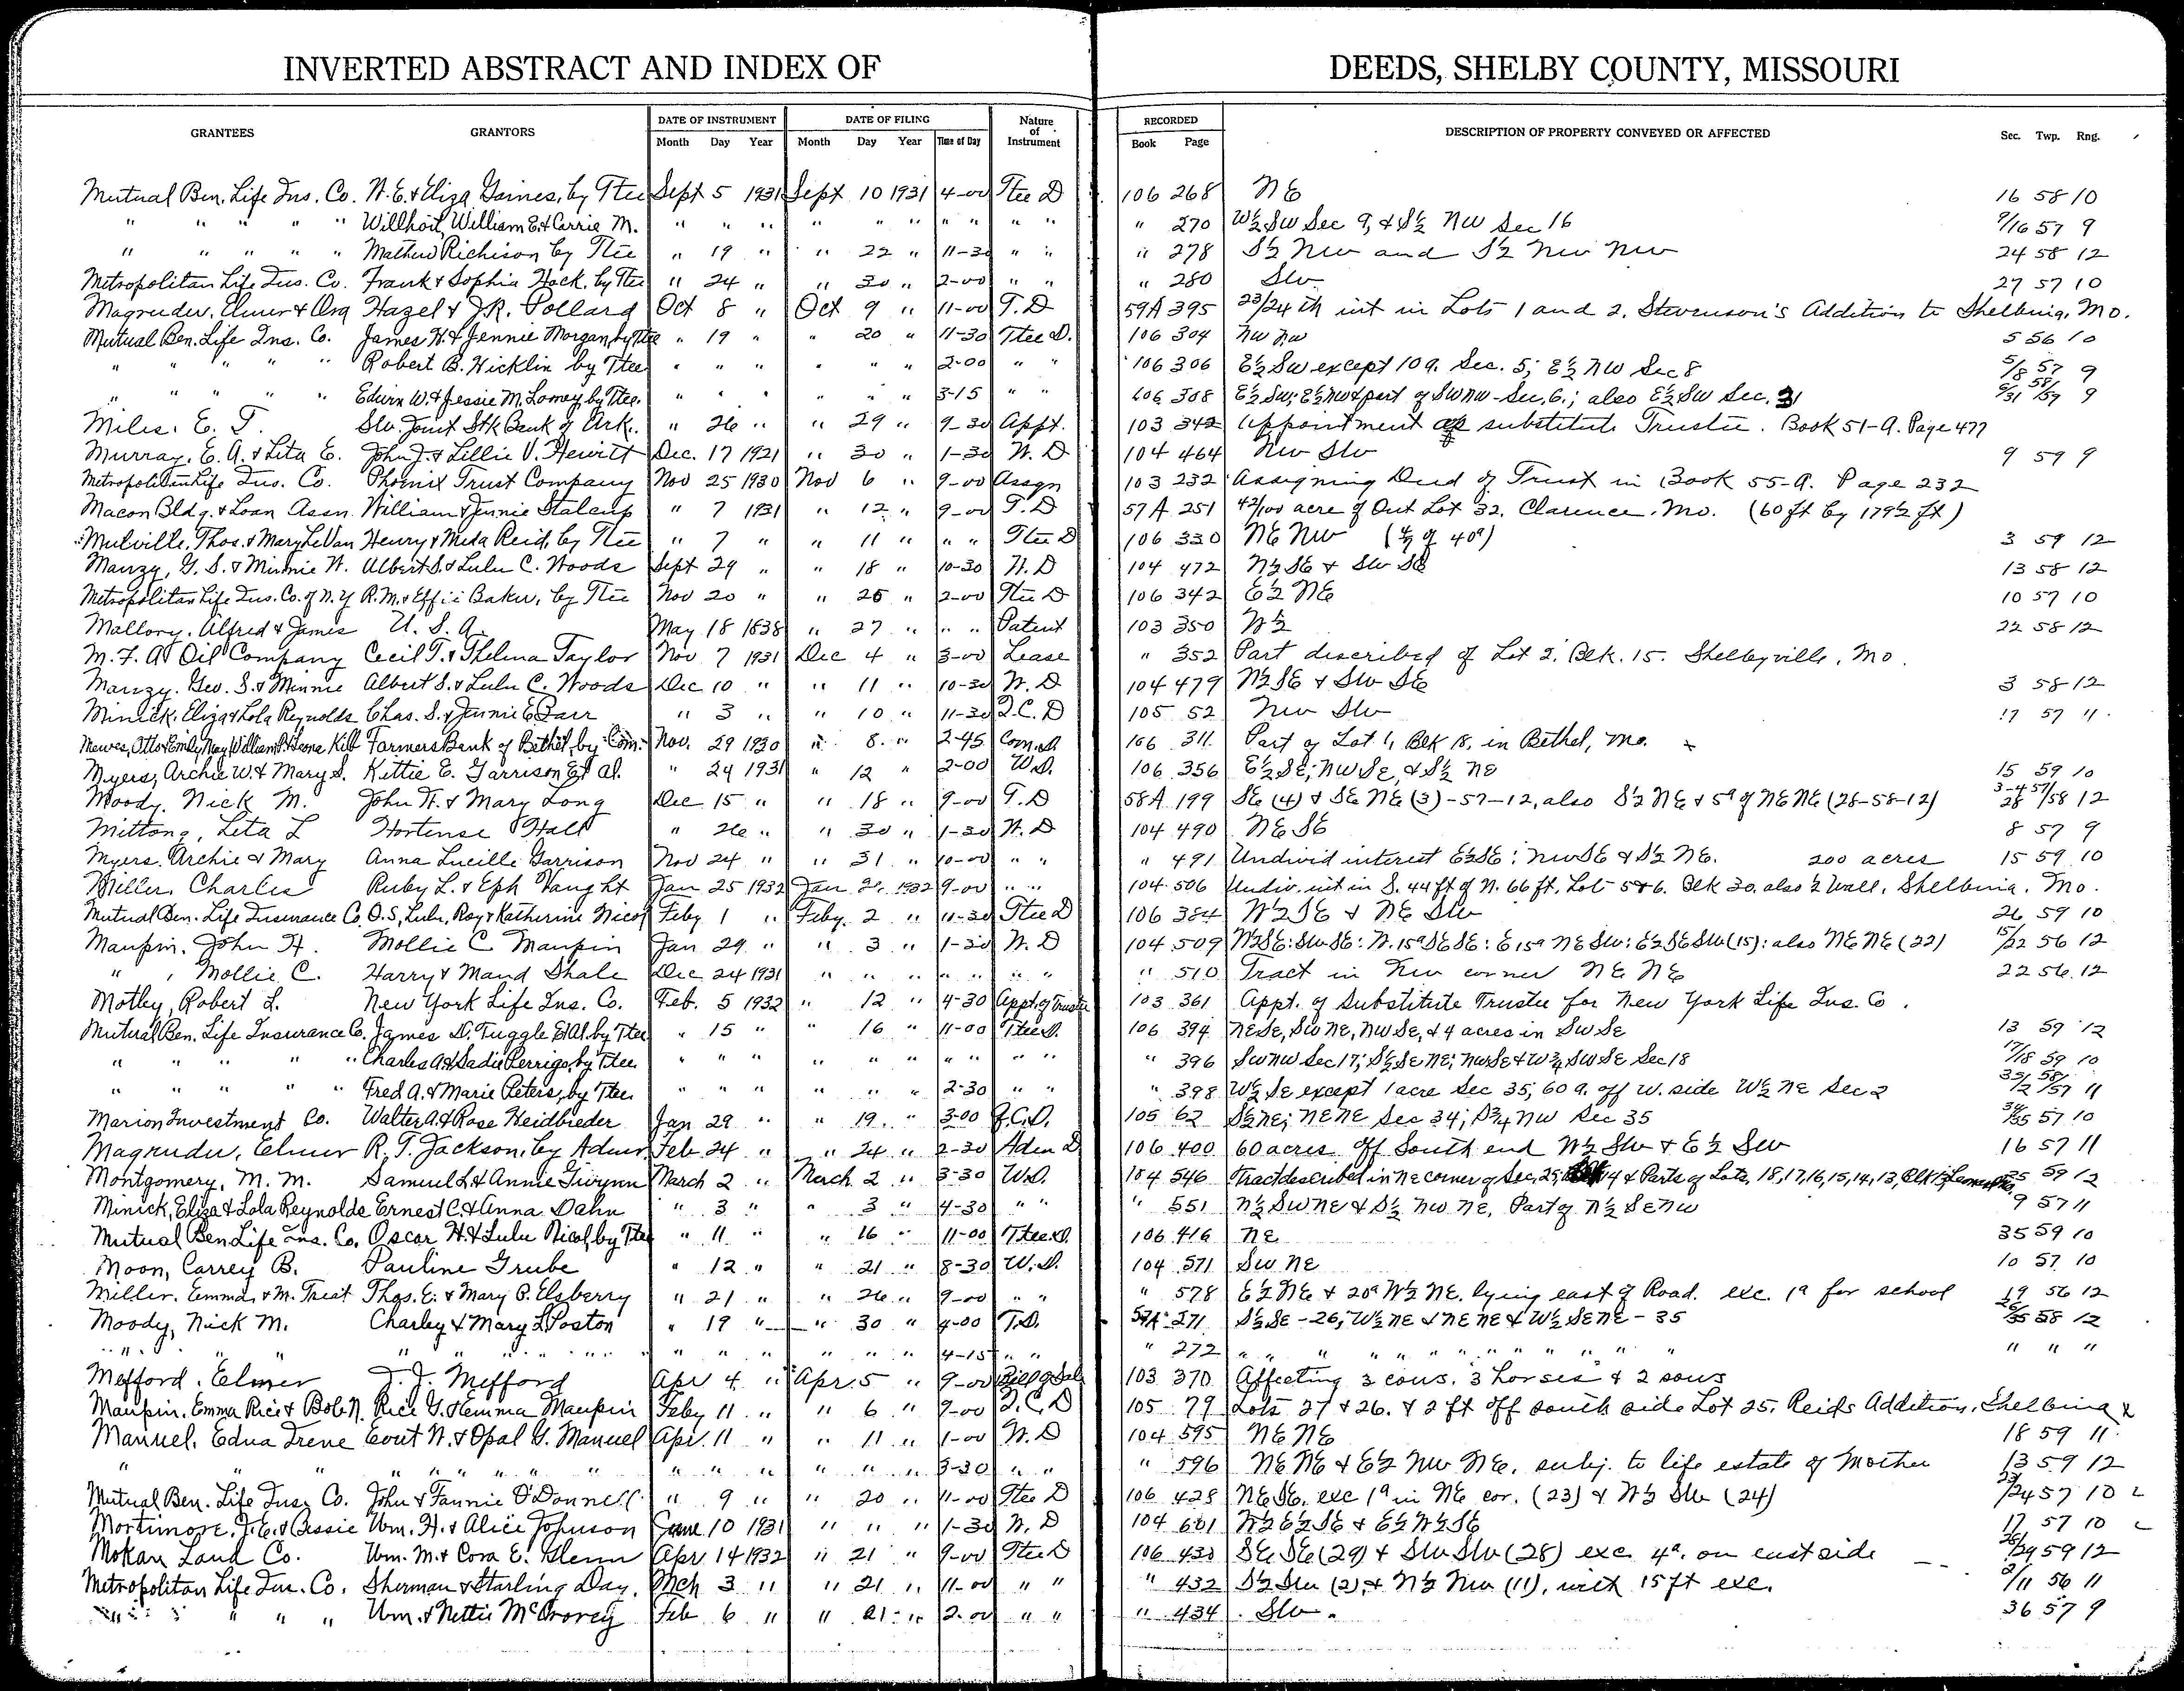 INVERTED ABSTRACT AND INDEX OF DEEDS, SHELBY COUNTY, MISSOURI
GRANTEES GRANTORS DATE OF INSTRUMENT DATE OF FILING Nature of Instrument RECORDED DESCRIPTION OF PROPERTY CONVEYED OR AFFECTED Sec. Twp. Rng.
Month Day Year Month Day Year Time of Day Book Page
Mutual Ben. Life Ins. Co. W. E. & Eliza Gaines, by Ttee Sept 5 1931 Sept 10 1931 4-00 Ttee D 106 268 NE 16 58 10
" " " " " Willhoit, William E. & Carrie M. " " " " " " " " " " " 270 W½ SW Sec 9, & S½ NW Sec 16 9/16 57 9
" " " " " Mathew Richison by Ttee " 19 " " 22 " 11-30 " " " 278 S½ NW and S½ NW NW 24 58 12
Metropolitan Life Ins. Co. Frank & Sophia Hock, by Ttee " 24 " " 30 " 2-00 " " " 280 SW 27 57 10
Magruder, Elmer & Ora Hazel & J.R. Pollard Oct 8 " Oct 9 " 11-00 T.D 59A 395 23/24 th int in Lots 1 and 2, Stevenson's Addition to Shelbina, Mo.
Mutual Ben. Life Ins. Co. James H. & Jennie Morgan, by Ttee " 19 " " 20 " 11-30 Ttee D. 106 304 NW NW 5 56 10
" " " " " Robert B. Hicklin by Ttee " " " " " " 2-00 " " 106 306 E½ SW except 10 a. Sec. 5; E½ NW Sec 8 5/8 57 9
" " " " " Edwin W. & Jessie M. Lomey, by Ttee. " " " " " " 3-15 " " 106 308 E½ SW; E½ NW & part of SW NW - Sec. 6.; also E½ SW Sec. 31 6/31 58/59 9
Miles, E. T. SW. Joint Stk Bank of Ark. " 26 " " 29 " 9-30 Appt. 103 342 Appointment of substitute Trustee. Book 51-A. Page 477
Murray, E. A. & Lita E. John J. & Lillie V. Hewitt Dec. 17 1921 " 30 " 1-30 W. D 104 464 NW SW 9 59 9
Metropolitan Life Ins. Co. Phoenix Trust Company Nov 25 1930 Nov 6 " 9-00 Assgn 103 232 Assigning Deed of Trust in Book 55-A. Page 232
Macon Bldg. & Loan Assn. William & Jennie Stalcup " 7 1931 " 12 " 9-00 T.D 57A 251 42/100 acre of Out Lot 32, Clarence, Mo. (60 ft by 179½ ft)
Mulville, Thos. & Mary LeVan Henry & Meda Reid, by Ttee " 7 " " 11 " " " Ttee D 106 330 NE NW 3 59 12
Manzy, G. S. & Minnie W. Albert S. & Lulu C. Woods Sept 29 " " 18 " 10-30 W. D 104 472 N½ SE & SW SE 13 58 12
Metropolitan Life Ins. Co. of N.Y R. M. & Effie Baker, by Ttee Nov 20 " " 25 " 2-00 Ttee D 106 342 E½ NE 10 57 10
Mallory, Alfred & James U. S. A. May 18 1838 " 27 " " " Patent 103 350 W½ 22 58 12
M. F. A. Oil Company Cecil T. & Thelma Taylor Nov 7 1931 Dec 4 " 3-00 Lease " 352 Part described of Lot 2, Blk. 15. Shelbyville, Mo.
Manzy, Geo. S. & Minnie Albert S. & Lulu C. Woods Dec 10 " " 11 " 10-30 W. D 104 479 N½ SE & SW SE 3 58 12
Minick, Eliza & Lola Reynolds Chas. S. & Jennie E. Barr " 3 " " 10 " 11-30 Q.C.D 105 52 NW SW 17 57 11
Mewes, Otto & Emily May, William P. & Gona Kilb Farmers Bank of Bethel, by Com. Nov. 29 1930 " 8 " 2-45 Com. D. 106 311 Part of Lot 1, Blk 18, in Bethel, Mo.
Myers, Archie W. & Mary S. Kittie E. Garrison Et al. " 24 1931 " 12 " 2-00 W.D. 106 356 E½ SE; NW SE, & S½ NE 15 59 10
Moody, Nick M. John H. & Mary Long Dec 15 " " 18 " 9-00 T.D 58A 199 SE (4) & SE NE (3)-57-12, also S½ NE & 5a of NE NE (28-58-12) 3-4/28 57/58 12
Mittong, Leta L Hortense Hall " 26 " " 30 " 1-30 W. D 104 490 NE SE 8 57 9
Myers, Archie & Mary Anna Lucille Garrison Nov 24 " " 31 " 10-00 " " " 491 Undivid interest E½ SE; NW SE & S½ NE. 200 acres 15 59 10
Miller, Charles Ruby L. & Eph Vaught Jan 25 1932 Jan 1932 9-00 " " 104 506 Undiv. int in S. 44 ft of N. 66 ft, Lot 5 & 6. Blk 30. also ½ Wall, Shelbina, Mo.
Mutual Ben. Life Insurance Co. O.S, Lulu, Roy & Katherine Nicol Feby 1 " Feby. 2 " 11-30 Ttee D 106 384 W½ SE & NE SW 26 59 10
Maupin, John H. Mollie C Maupin Jan 29 " " 3 " 1-30 W. D 104 509 W½ SE: SW SE: W. 15a SE SE: E 15a NE SW: E½ SE SW (15): also NE NE (22) 15/22 56 12
" , Mollie C. Harry & Maud Shale Dec 24 1931 " " " " " " " " 510 Tract in NW corner NE NE 22 56 12
Motley, Robert L. New York Life Ins. Co. Feb. 5 1932 " 12 " 4-30 Appt. of Trustee 103 361 Appt. of Substitute Trustee for New York Life Ins. Co.
Mutual Ben. Life Insurance Co. James D. Tuggle Et Al. by Ttee " 15 " " 16 " 11-00 Ttee D. 106 394 NE SE, SW NE, NW SE, & 4 acres in SW SE 13 59 12
" " " " " Charles A. & Sadie Perrigo, by Ttee. " " " " " " " " " " " 396 SW NW Sec 17; S½ SE NE; NW SE & W¾ SW SE Sec 18 17/18 59 10
" " " " " Fred A. & Marie Peters, by Ttee. " " " " " " 2-30 " " " 398 W½ SE except 1 acre Sec 35; 60 a. off W. side W½ NE Sec 2 35/2 58/57 11
Marion Investment Co. Walter A. & Rose Heidbreder Jan 29 " " 19 " 3-00 Q.C.D. 105 62 S½ NE; NE NE Sec 34; S¾ NW Sec 35 34/35 57 10
Magruder, Elmer R. T. Jackson, by Admr. Feb 24 " " 24 " 2-30 Adm D 106 400 60 acres off South end W½ SW & E½ SW 16 57 11
Montgomery, M. M. Samuel L. & Annie Gwynn March 2 " March 2 " 3-30 W.D. 104 546 Tract described in NE corner of Sec. 25, 14 & Parts of Lots, 18, 17, 16, 15, 14, 13, Blk 13 25 59 12
Minick, Eliza & Lola Reynolds Ernest C. & Anna Dahn " 3 " " 3 " 4-30 " " " 551 N½ SW NE & S½ NW NE, Part of N½ SE NW 9 57 11
Mutual Ben Life Ins. Co. Oscar H. & Lulu Nicol, by Ttee " 11 " " 16 " 11-00 Ttee D. 106 416 NE 35 59 10
Moon, Carrey B. Pauline Grube " 12 " " 21 " 8-30 W.D. 104 571 SW NE 10 57 10
Miller, Emma, & M. Treat Thos. E. & Mary P. Elsberry " 21 " " 26 " 9-00 " " " 578 E½ NE & 20a W½ NE. lying east of Road. exc. 1a for school 19 56 12
Moody, Nick M. Charley & Mary L. Poston " 19 " " 30 " 4-00 T.D. 59A 271 S½ SE - 26; W½ NE & NE NE & W½ SE NE - 35 26/35 58 12
" " " " " " " " " " " " " 4-15 " " " 272 " " " " " " " " " " " " " "
Mefford, Elmer J. J. Mefford Apr 4 " Apr. 5 " 9-00 Bill of Sale 103 370 Affecting 3 cows, 3 horses & 2 sows
Maupin, Emma Rice & Bob N. Rice G. & Emma Maupin Feby 11 " " 6 " 9-00 Q.C.D 105 79 Lots 27 & 26. & 2 ft off south side Lot 25, Reids Addition, Shelbina
Manuel, Edna Irene Cout W. & Opal G. Manuel Apr. 11 " " 11 " 1-00 W. D 104 595 NE NE 18 59 11
" " " " " " " " " " " " " 3-30 " " " 596 NE NE & E½ NW NE, subj. to life estate of Mother 13 59 12
Mutual Ben. Life Ins. Co. John & Fannie O'Donnell " 9 " " 20 " 11-00 Ttee D 106 428 NE SE, exc 1a in NE cor. (23) & W½ SW (24) 23/24 57 10
Mortimore, J. E. & Bessie Wm. H. & Alice Johnson June 10 1931 " " " 1-30 W. D 104 601 W½ E½ SE & E½ W½ SE 17 57 10
Mokan Land Co. Wm. M. & Cora E. Glenn Apr 14 1932 " 21 " 9-00 Ttee D 106 430 SE SE (29) & SW SW (28) exc. 4a. on east side 28/29 59 12
Metropolitan Life Ins. Co. Sherman & Starling Day, Mch 3 " " 21 " 11-00 " " " 432 S½ SW (2) & N½ NW (11), with 15 ft exc. 2/11 56 11
" " " " Wm. & Nettie McCrovey Feb 6 " " 21 " 2-00 " " " 434 SW 36 57 9